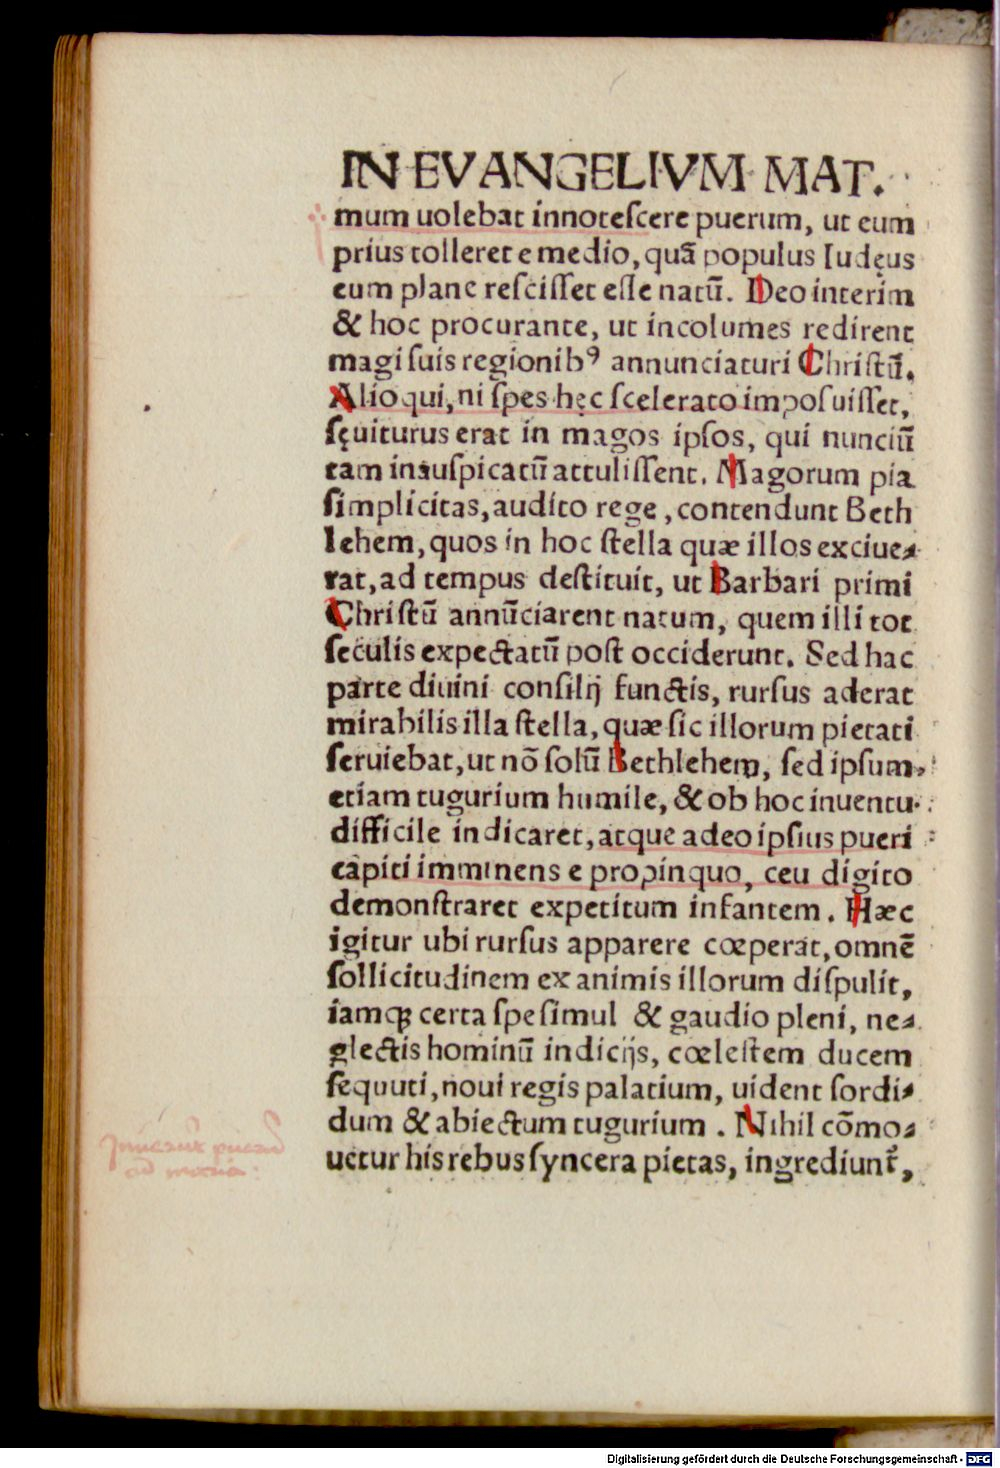 IN EVANGELIVM MAT.
mum uolebat innotescere puerum, ut eum
prius tolleret e medio, quã populus Iudęus
eum plane resciſſet eſſe natũ. Deo interim
& hoc procurante, ut incolumes redirent
magi ſuis regionibꝰ annunciaturi Chriſtũ.
Alioqui, ni ſpes hęc ſcelerato impoſuiſſet,
ſęuiturus erat in magos ipſos, qui nunciũ
tam inauſpicatũ attuliſſent. Magorum pia
ſimplicitas, audito rege, contendunt Beth
lehem, quos in hoc ſtella quæ illos exciue-
rat, ad tempus deſtituit, ut Barbari primi
Chriſtũ annũciarent natum, quem illi tot
ſeculis expectatũ poſt occiderunt. Sed hac
parte diuini conſilij functis, rurſus aderat
mirabilis illa ſtella, quæ ſic illorum pietati
ſeruiebat, ut nõ ſolũ Bethlehem, ſed ipſum
etiam tugurium humile, & ob hoc inuentu
difficile indicaret, atque adeo ipſius pueri
capiti imminens e propinquo, ceu digito
demonſtraret expetitum infantem. Hæc
igitur ubi rurſus apparere cœperat, omnẽ
ſollicitudinem ex animis illorum diſpulit,
iamqꝫ certa ſpe ſimul & gaudio pleni, ne-
glectis hominũ indicijs, cœleſtem ducem
ſequuti, noui regis palatium, uident ſordi-
dum & abiectum tugurium. Nihil cõmo-
uetur his rebus ſyncera pietas, ingrediunt᷑,
Digitalisierung gefördert durch die Deutsche Forschungsgemeinschaft - DFG